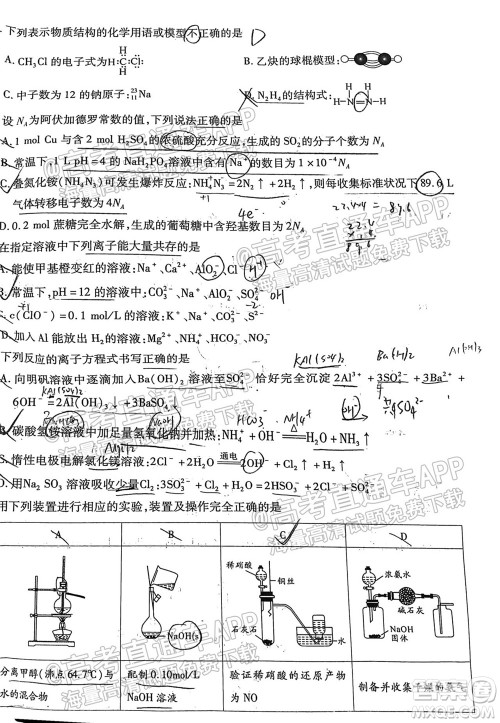 下列表示物质结构的化学用语或模型不正确的是 D
A. CH₃Cl 的电子式为 H:C:Cl: H H
B. 乙炔的球棍模型:
C. 中子数为 12 的钠原子: ²³₁₁Na
D. N₂H₄ 的结构式: H—N=N—H
设 N_A 为阿伏加德罗常数的值,下列说法正确的是
A. 1 mol Cu 与含 2 mol H₂SO₄ 的浓硫酸充分反应,生成的 SO₂ 的分子个数为 N_A
B. 常温下,1 L pH=4 的 NaH₂PO₄ 溶液中含有 Na⁺ 的数目为 1×10⁻⁴N_A
C. 叠氮化铵(NH₄N₃)可发生爆炸反应:NH₄N₃=2N₂↑+2H₂↑,则每收集标准状况下 89.6 L
气体转移电子数为 4N_A
4e⁻
22.4×4=89.6
22.4
89.6
D. 0.2 mol 蔗糖完全水解,生成的葡萄糖中含羟基数目为 2N_A
在指定溶液中下列离子能大量共存的是
A. 能使甲基橙变红的溶液:Na⁺、Ca²⁺、AlO₂⁻、Cl⁻ H⁺
B. 常温下,pH=12 的溶液中:CO₃²⁻、Na⁺、AlO₂⁻、SO₄²⁻ OH⁻
C. c(ClO⁻)=0.1 mol/L 的溶液:Na⁺、K⁺、SO₃²⁻、S²⁻
D. 加入 Al 能放出 H₂ 的溶液:Mg²⁺、NH₄⁺、HCO₃⁻、SO₄²⁻
KAl(SO₄)₂ Ba(OH)₂ Al(OH)₃
下列反应的离子方程式书写正确的是
A. 向明矾溶液中逐滴加入 Ba(OH)₂ 溶液至 SO₄²⁻ 恰好完全沉淀 2Al³⁺+3SO₄²⁻+3Ba²⁺+
KAl(SO₄)₂
6OH⁻=2Al(OH)₃↓+3BaSO₄↓
B. 碳酸氢铵溶液中加足量氢氧化钠并加热:NH₄⁺+OH⁻=H₂O+NH₃↑
HCO₃⁻ NH₄⁺ OH⁻
C. 惰性电极电解氯化镁溶液:2Cl⁻+2H₂O 通电 2OH⁻+Cl₂↑+H₂↑
D. 用 Na₂SO₃ 溶液吸收少量 Cl₂:3SO₃²⁻+Cl₂+H₂O=2HSO₃⁻+2Cl⁻+SO₄²⁻
用下列装置进行相应的实验,装置及操作完全正确的是
A B C D
NaOH(s)
稀硝酸 铜丝 石灰石 水
浓氨水 碱石灰 NaOH 固体
分离甲醇(沸点 64.7℃)与
水的混合物
配制 0.10mol/L
NaOH 溶液
验证稀硝酸的还原产物
为 NO
制备并收集干燥的氨气
@高考直通车APP
海量高清试题免费下载
@高考直通车APP
海量高清试题免费下载